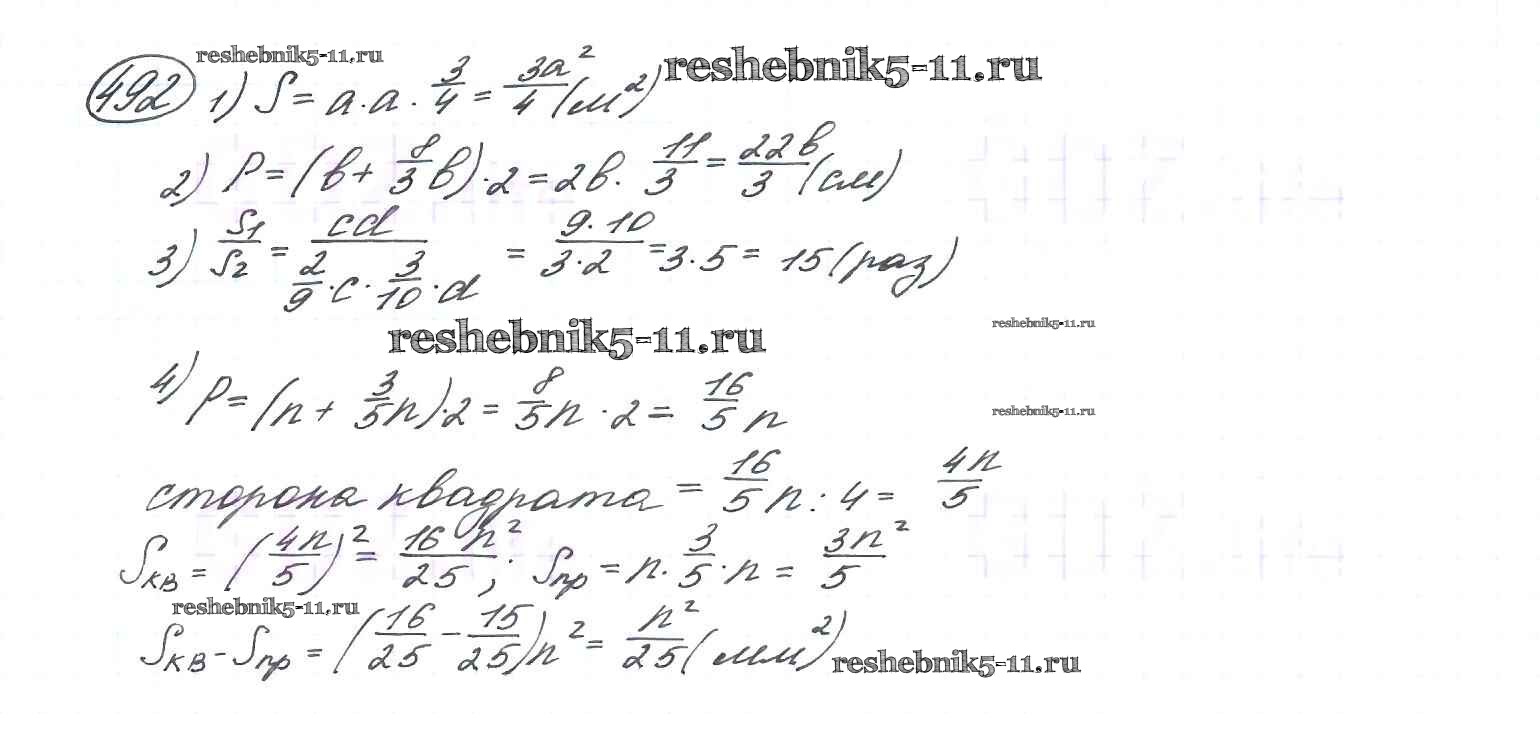 reshebnik5-11.ru
492 1) S = a·a·3/4 = 3a²/4 (м²) reshebnik5-11.ru
2) P = (в + 8/3 в)·2 = 2в·11/3 = 22в/3 (см)
3) S₁/S₂ = cd/(2/9·c·3/10·d) = 9·10/(3·2) = 3·5 = 15 (раз)
reshebnik5-11.ru reshebnik5-11.ru
4) P = (n + 3/5 n)·2 = 8/5 n·2 = 16/5 n reshebnik5-11.ru
сторона квадрата = 16/5 n : 4 = 4n/5
Sкв = (4n/5)² = 16n²/25; Sпр = n·3/5·n = 3n²/5
reshebnik5-11.ru
Sкв - Sпр = (16/25 - 15/25)n² = n²/25 (мм²) reshebnik5-11.ru